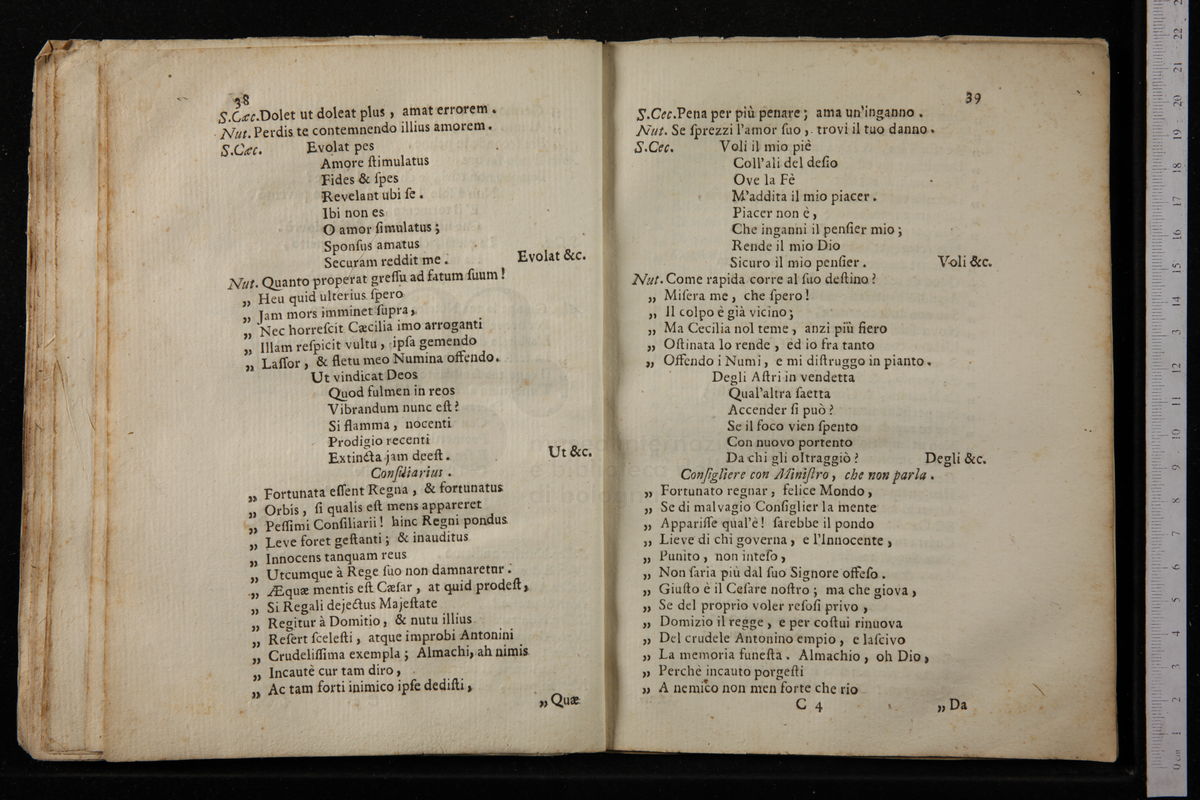 38
S.Cæc. Dolet ut doleat plus, amat errorem.
Nut. Perdis te contemnendo illius amorem.
S.Cæc. Evolat pes
Amore ſtimulatus
Fides & ſpes
Revelant ubi ſe.
Ibi non es
O amor ſimulatus;
Sponſus amatus
Securam reddit me. Evolat &c.
Nut. Quanto properat greſſu ad fatum ſuum!
„ Heu quid ulterius ſpero
„ Jam mors imminet ſupra,
„ Nec horreſcit Cæcilia imo arroganti
„ Illam reſpicit vultu, ipſa gemendo
„ Laſſor, & fletu meo Numina offendo.
Ut vindicat Deos
Quod fulmen in reos
Vibrandum nunc eſt?
Si flamma, nocenti
Prodigio recenti
Extincta jam deeſt. Ut &c.
Conſiliarius.
„ Fortunata eſſent Regna, & fortunatus
„ Orbis, ſi qualis eſt mens appareret
„ Peſſimi Conſiliarii! hinc Regni pondus
„ Leve foret geſtanti; & inauditus
„ Innocens tanquam reus
„ Utcumque à Rege ſuo non damnaretur.
„ Æquæ mentis eſt Cæſar, at quid prodeſt,
„ Si Regali dejectus Majeſtate
„ Regitur à Domitio, & nutu illius
„ Refert ſceleſti, atque improbi Antonini
„ Crudeliſſima exempla; Almachi, ah nimis
„ Incautè cur tam diro,
„ Ac tam forti inimico ipſe dediſti,
„ Quæ
39
S.Cec. Pena per più penare; ama un'inganno.
Nut. Se ſprezzi l'amor ſuo, trovi il tuo danno.
S.Cec. Voli il mio piè
Coll'ali del deſio
Ove la Fè
M'addita il mio piacer.
Piacer non è,
Che inganni il penſier mio;
Rende il mio Dio
Sicuro il mio penſier. Voli &c.
Nut. Come rapida corre al ſuo deſtino?
„ Miſera me, che ſpero!
„ Il colpo è già vicino;
„ Ma Cecilia nol teme, anzi più fiero
„ Oſtinata lo rende, ed io fra tanto
„ Offendo i Numi, e mi diſtruggo in pianto.
Degli Aſtri in vendetta
Qual'altra ſaetta
Accender ſi può?
Se il foco vien ſpento
Con nuovo portento
Da chi gli oltraggiò? Degli &c.
Conſigliere con Miniſtro, che non parla.
„ Fortunato regnar, felice Mondo,
„ Se di malvagio Conſiglier la mente
„ Appariſſe qual'è! ſarebbe il pondo
„ Lieve di chi governa, e l'Innocente,
„ Punito, non inteſo,
„ Non ſaria più dal ſuo Signore offeſo.
„ Giuſto è il Ceſare noſtro; ma che giova,
„ Se del proprio voler reſoſi privo,
„ Domizio il regge, e per coſtui rinuova
„ Del crudele Antonino empio, e laſcivo
„ La memoria funeſta. Almachio, oh Dio,
„ Perchè incauto porgeſti
„ A nemico non men forte che rio
C 4 „ Da